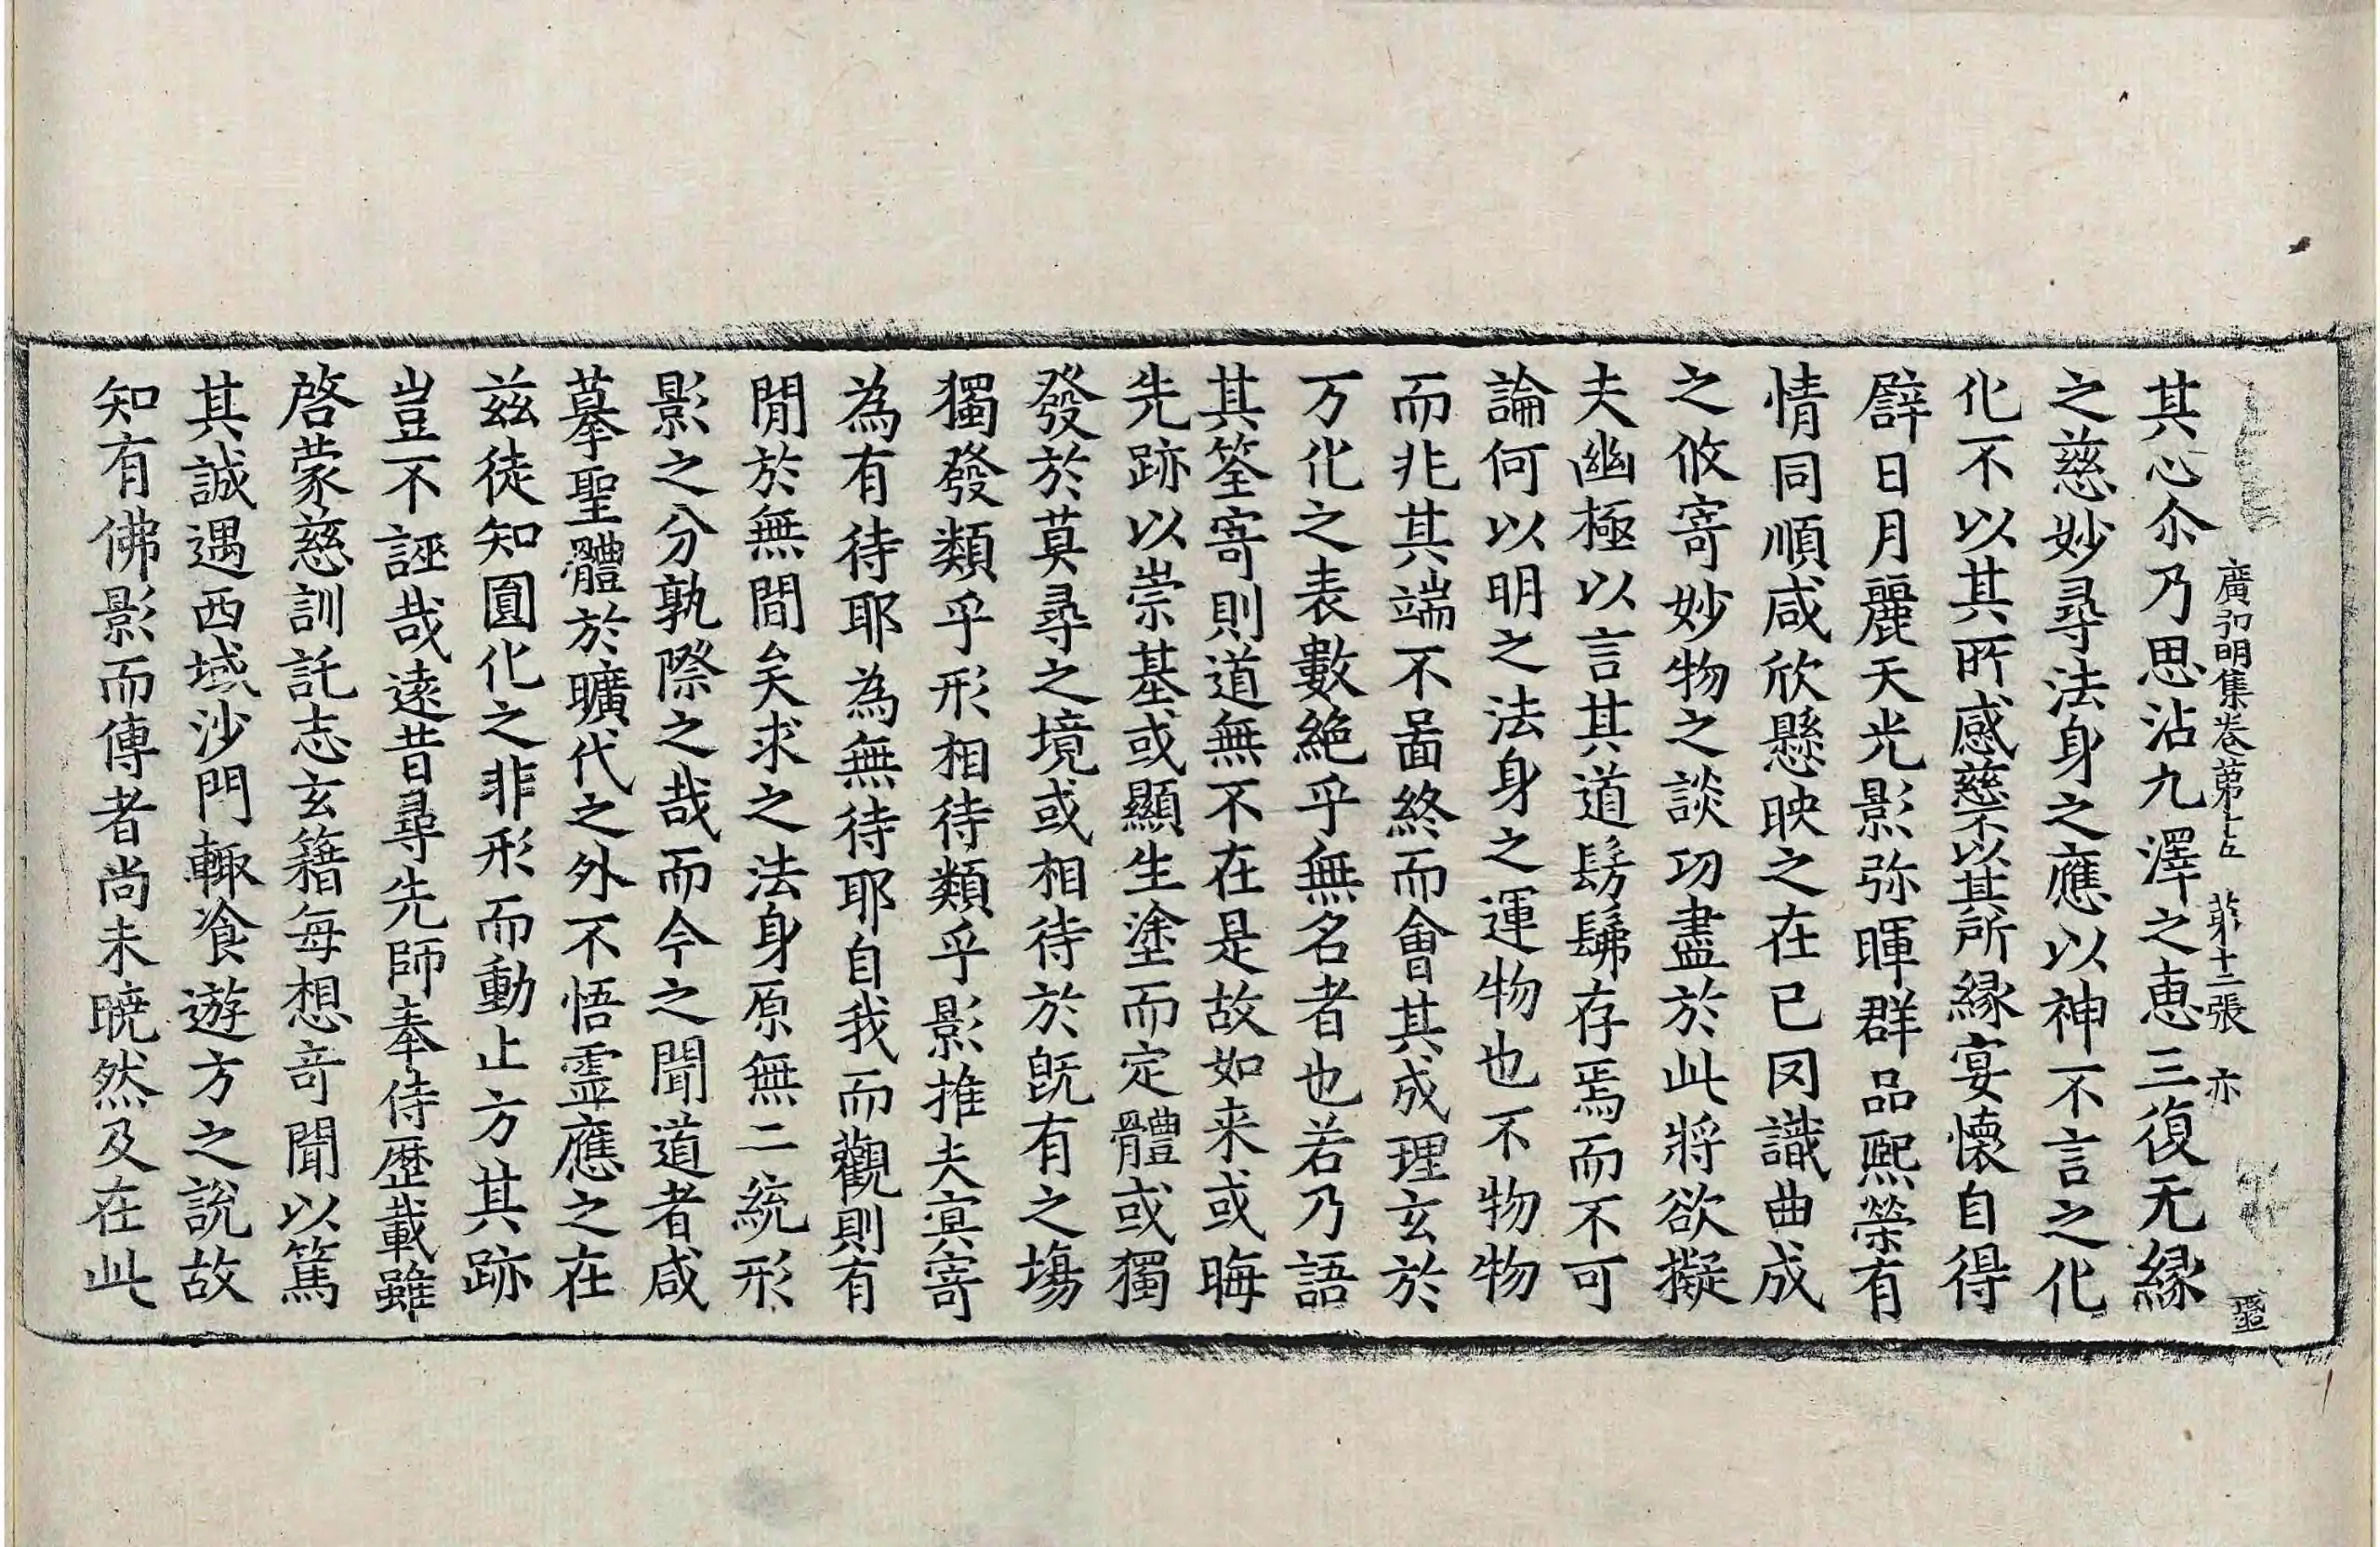 廣弘明集卷第十五　第十二張　亦
其心尒乃思沾九澤之恵三復无緣
之慈妙尋法身之應以神不言之化
化不以其所感慈不以其所緣宴懷自得
辟日月麗天光影弥暉群品熙榮有
情同順咸欣懸映之在已罔識曲成
之攸寄妙物之談功盡於此將欲擬
夫幽極以言其道髣髴存焉而不可
論何以明之法身之運物也不物物
而兆其端不啚終而會其成理玄於
万化之表數絶乎無名者也若乃語
其筌寄則道無不在是故如来或晦
先跡以崇基或顯生塗而定體或獨
發於莫尋之境或相待於旣有之塲
獨發類乎形相待類乎影推夫冥寄
為有待耶為無待耶自我而觀則有
閒於無間矣求之法身原無二統形
影之分孰際之哉而今之聞道者咸
摹聖體於曠代之外不悟靈應之在
兹徒知圎化之非形而動止方其跡
豈不誣哉遠昔尋先師奉侍歷載雖
啓蒙慈訓託志玄籍每想奇聞以篤
其誠遇西域沙門輙飡遊方之說故
知有佛影而傳者尚未曉然及在此